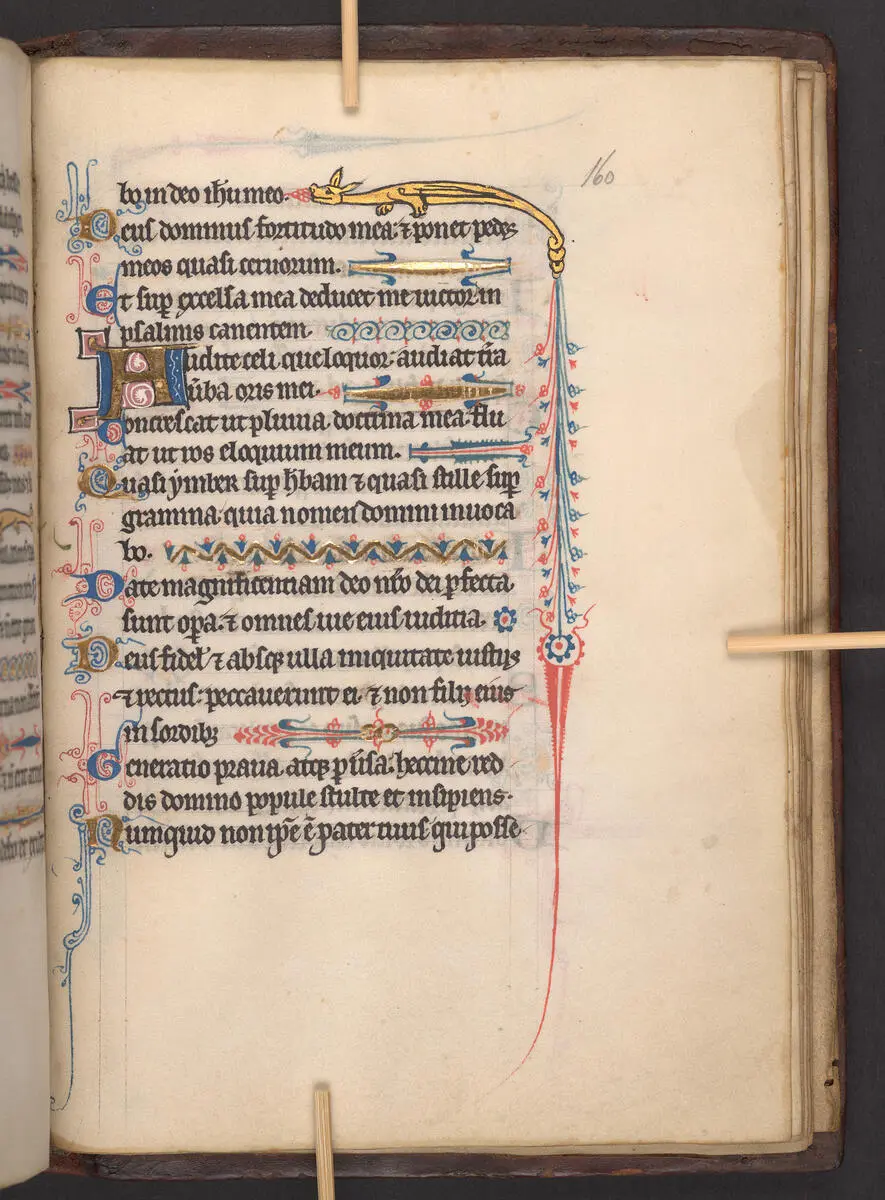 160
bo in deo ihu meo.
Deus dominus fortitudo mea: ⁊ ponet pedes
meos quasi ceruorum.
Et sup excelsa mea deducet me uictor in
psalmis canentem.
Audite celi que loquor: audiat tra
uba oris mei.
Concrescat ut pluuia doctrina mea: flu
at ut ros eloquium meum.
Quasi ymber sup hbam ⁊ quasi stille sup
gramina. quia nomen domini inuoca
bo.
Date magnificentiam deo nro dei pfecta
sunt opa. ⁊ omnes uie eius iuditia.
Deus fidel ⁊ absq; ulla iniquitate iustus
⁊ rectus: peccauerunt ei. ⁊ non filij eius
in sordib;
Generatio praua. atq; puisa: heccine red
dis domino popule stulte et insipiens.
Numquid non ipe ē pater tuus qui posse